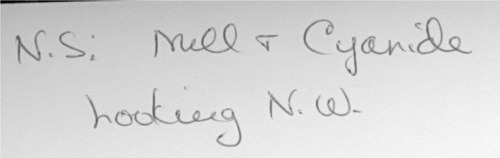 N.S: Mill & Cyanide
Looking N.W.